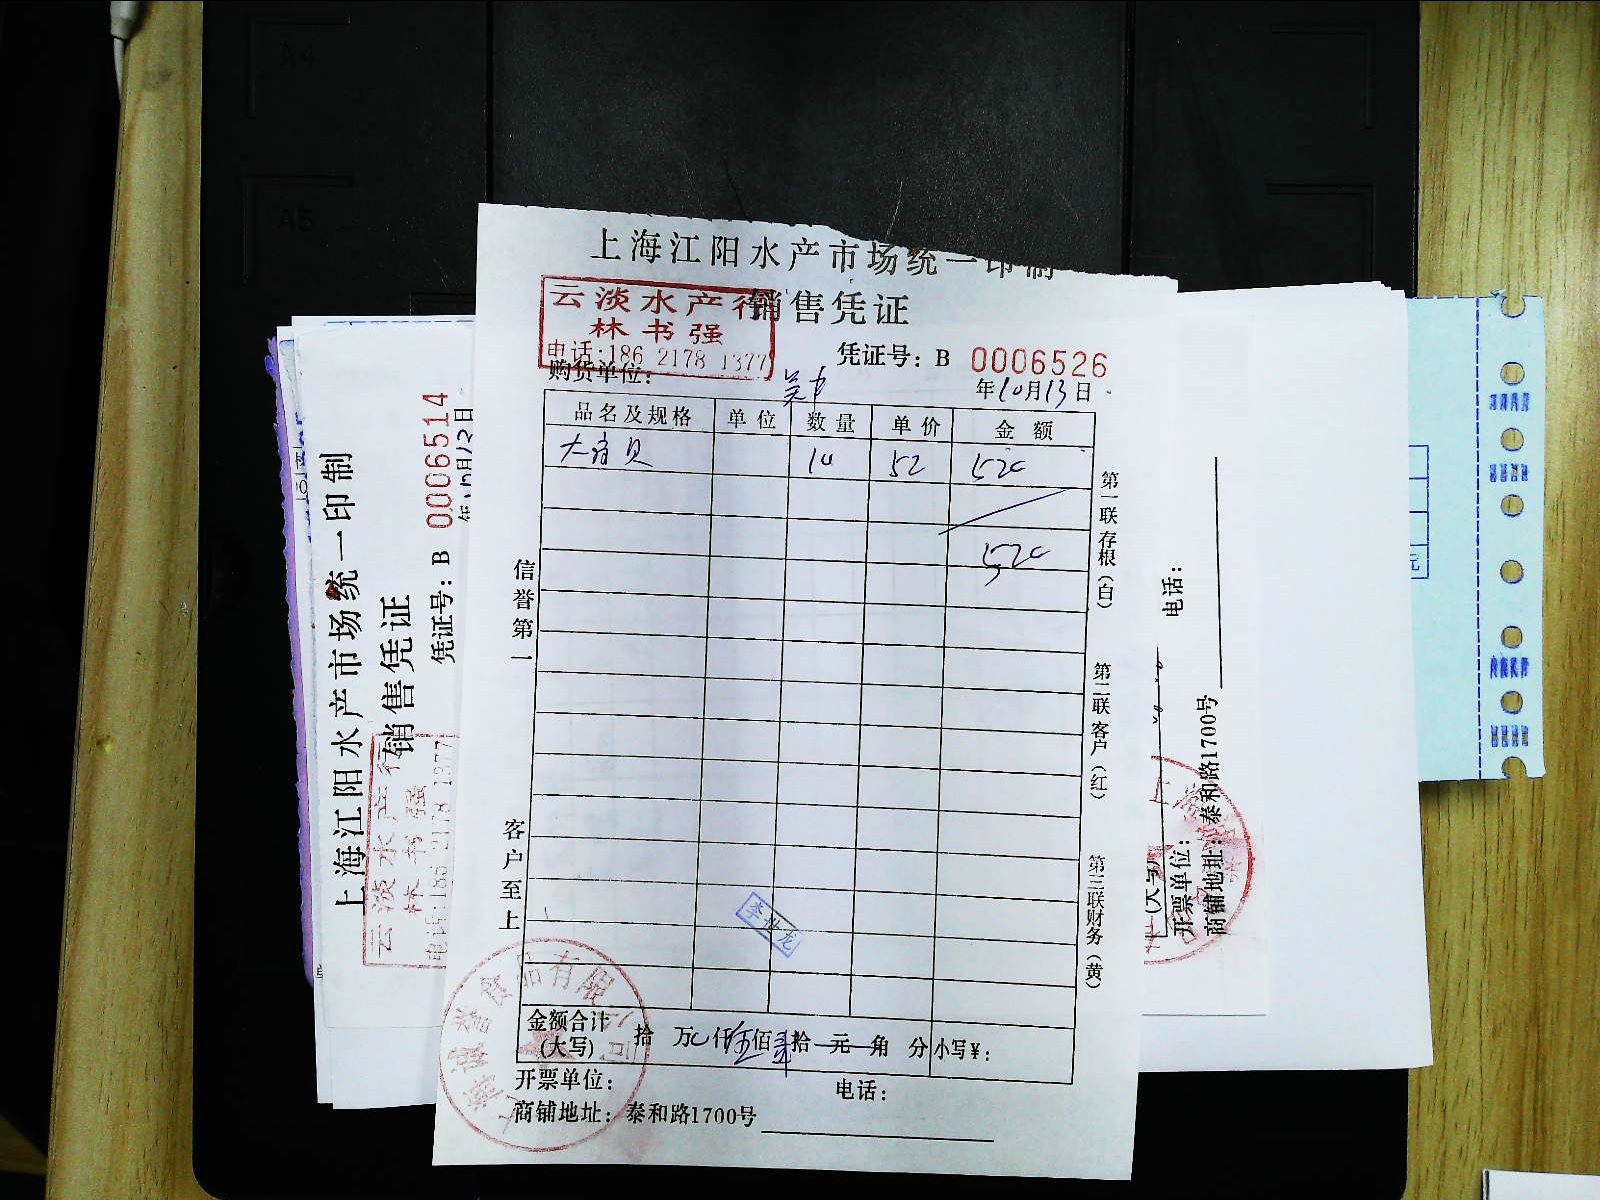 上海江阳水产市场统一印制
销售凭证
云淡水产行
林书强
电话:186 2178 1377
凭证号: B 0006526
购货单位:
年10月13日
品名及规格 单位 数量 单价 金额
大扇贝 10 52 520
520
第一联存根(白)
第二联客户(红)
第三联财务(黄)
信誉第一
客户至上
李世龙
金额合计(大写) 拾 万 仟伍佰贰拾 元 角 分 小写¥:
开票单位: 电话:
商铺地址: 泰和路1700号
上海江阳水产市场统一印制
销售凭证
凭证号: B 0006514
年10月12日
云淡水产行
林书强
电话:186 2178 1377
电话:
(大写)
开票单位:
商铺地址: 泰和路1700号
元
A4
A5